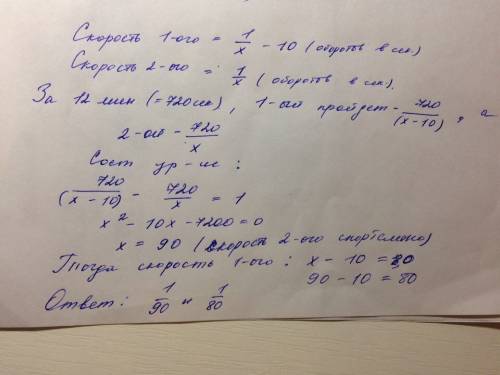 Скорость 1-ого = 1/x - 10 (оборотов в сек.)
Скорость 2-ого = 1/x (оборотов в сек).
За 12 мин (=720сек), 1-ый пройдет - 720/(x-10), а
2-ой - 720/x
Сост ур-ие:
720/(x-10) - 720/x = 1
x² - 10x - 7200 = 0
x = 90 (скорость 2-ого спортсмена)
Тогда скорость 1-ого: x - 10 = 80
90 - 10 = 80
Ответ: 1/90 и 1/80